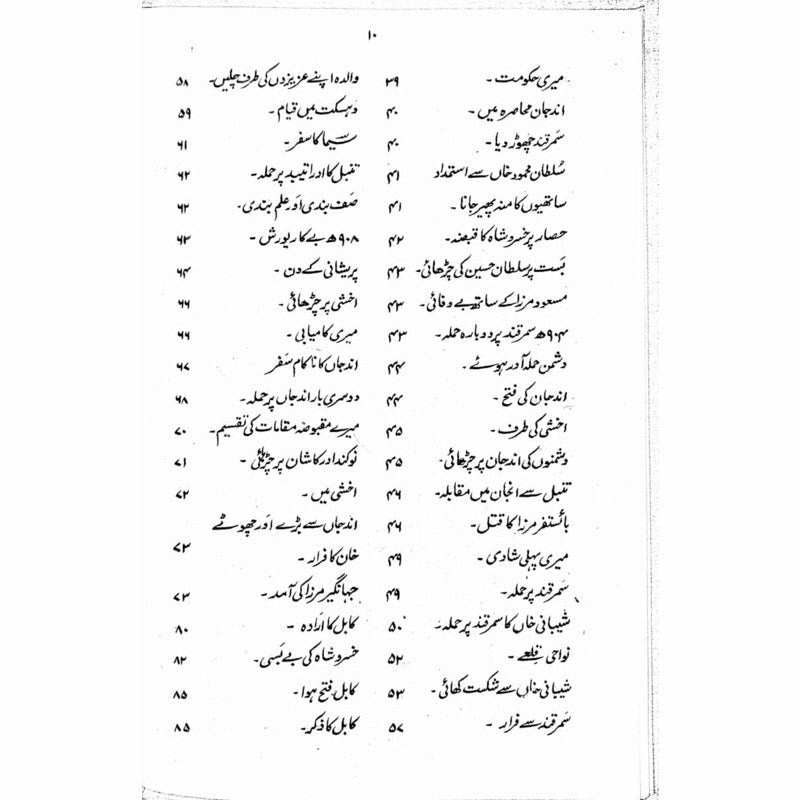 ۱۰
میری حکومت - ۳۹
اندجان محاصرہ میں - ۴۰
سمرقند چھوڑ دیا - ۴۰
سُلطان محمود خاں سے استمداد ۴۱
ساتھیوں کا منہ پھیر جانا - ۴۱
حصار پر خسرو شاہ کا قبضہ - ۴۲
بست پر سلطان حسین کی چڑھائی - ۴۳
مسعود مرزا کے ساتھ بے وفائی - ۴۳
۹۰۴ھ سمرقند پر دوبارہ حملہ - ۴۳
دشمن حملہ آور ہوئے - ۴۴
اندجان کی فتح - ۴۴
اخشی کی طرف - ۴۵
دشمنوں کی اندجان پر چڑھائی - ۴۵
تنبل سے انجان میں مقابلہ - ۴۶
بائسنغر مرزا کا قتل - ۴۶
میری پہلی شادی - ۴۹
سمرقند پر حملہ - ۴۹
شیبانی خاں کا سمرقند پر حملہ - ۵۰
نواحی قلعے - ۵۲
شیبانی خاں سے شکست کھائی - ۵۳
سمرقند سے فرار - ۵۷
والدہ اپنے عزیزوں کی طرف چلیں - ۵۸
دہسکت میں قیام - ۵۹
سیما کا سفر - ۶۱
تنبل کا اوراتیپہ پر حملہ - ۶۲
صف بندی اور علم بندی - ۶۲
۹۰۸ھ بے کار یورش - ۶۳
پریشانی کے دن - ۶۴
اخشی پر چڑھائی - ۶۶
میری کامیابی - ۶۶
اندجاں کا ناکام سفر ۶۷
دوسری بار اندجاں پر حملہ - ۶۸
میرے مقبوضہ مقامات کی تقسیم - ۷۰
نوکند اور کاشان پر چڑھائی - ۷۱
اخشی میں - ۷۲
اندجاں سے بڑے اور چھوٹے
خان کا فرار - ۷۳
جہانگیر مرزا کی آمد - ۷۳
کابل کا ارادہ - ۸۰
خسرو شاہ کی بے بسی - ۸۲
کابل فتح ہوا - ۸۵
کابل کا ذکر - ۸۵